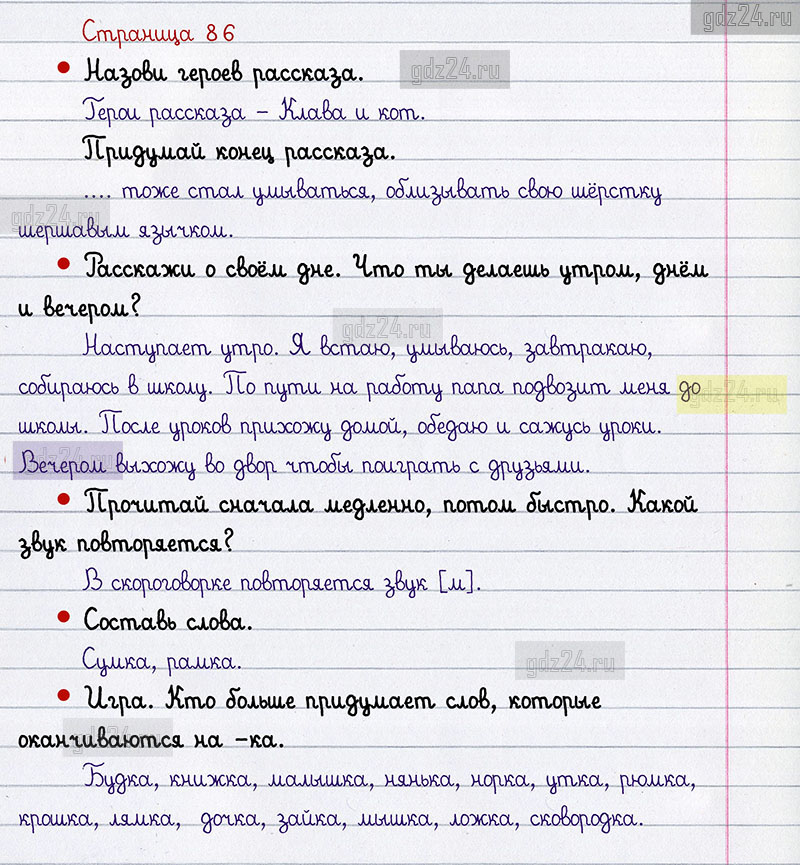 gdz24.ru
Страница 86
• Назови героев рассказа.
gdz24.ru
Герои рассказа – Клава и кот.
Придумай конец рассказа.
.... тоже стал умываться, облизывать свою шёрстку
gdz24.ru
шершавым язычком.
• Расскажи о своём дне. Что ты делаешь утром, днём
и вечером?
gdz24.ru
Наступает утро. Я встаю, умываюсь, завтракаю,
собираюсь в школу. По пути на работу папа подвозит меня до
gdz24.ru
школы. После уроков прихожу домой, обедаю и сажусь уроки.
Вечером выхожу во двор чтобы поиграть с друзьями.
gdz24.ru
• Прочитай сначала медленно, потом быстро. Какой
звук повторяется?
В скороговорке повторяется звук [м].
• Составь слова.
Сумка, рамка.
gdz24.ru
• Игра. Кто больше придумает слов, которые
оканчиваются на -ка.
gdz24.ru
Будка, книжка, малышка, нянька, норка, утка, рюмка,
крошка, лямка, дочка, зайка, мышка, ложка, сковородка.